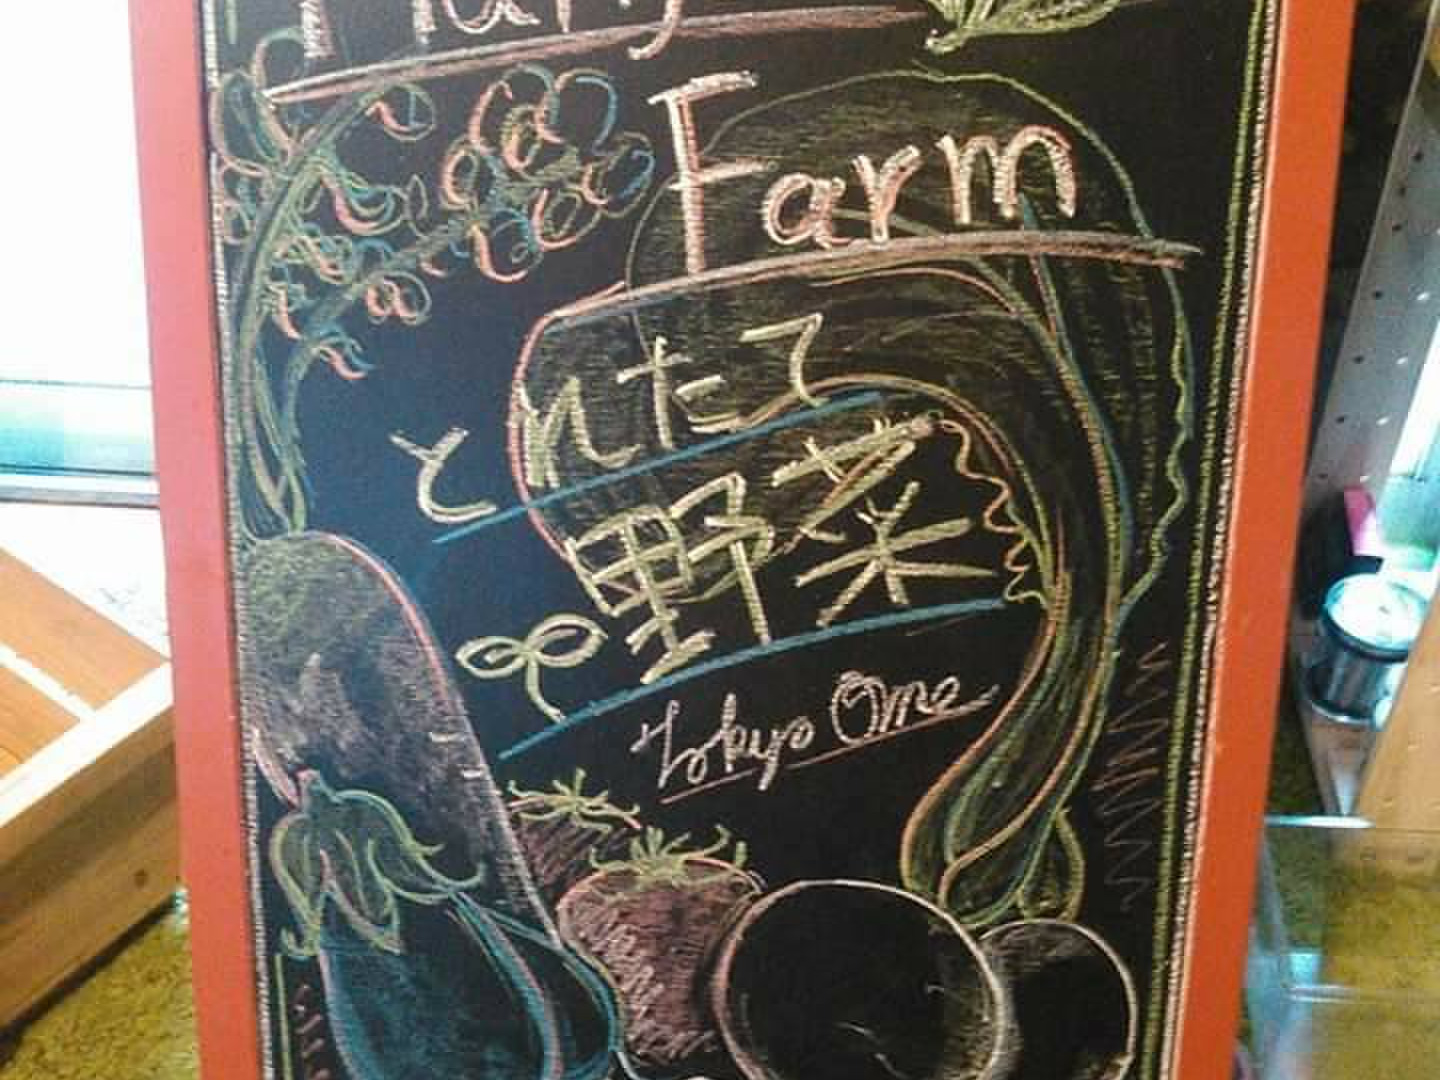 Farm
とれたて
野菜
Tokyo Ome